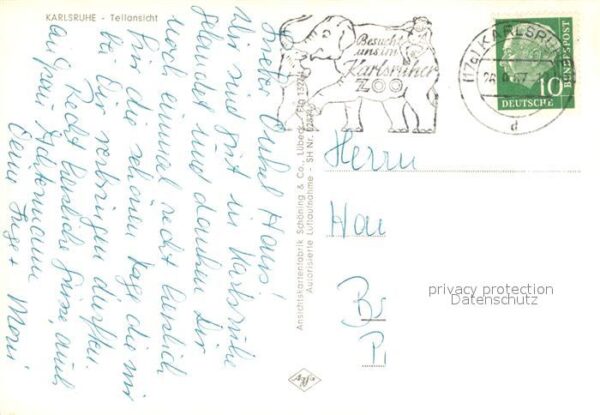 KARLSRUHE - Teilansicht
Lieber Onkel Hans!
Wir sind gut in Karlsruhe
gelandet und danken Dir
noch einmal recht herzlich
für die schönen Tage die wir
bei Dir verbringen durften.
Recht herzliche Grüße, auch
an Frau
Deine Inge +
Ansichtskartenfabrik Schöning & Co., Lübeck
Autorisierte Luftaufnahme - SH Nr.
Besucht
uns im
Karlsruher
ZOO
(17a) KARLSRUHE
d
10
DEUTSCHE
BUNDESPOST
Herrn
privacy protection
Datenschutz